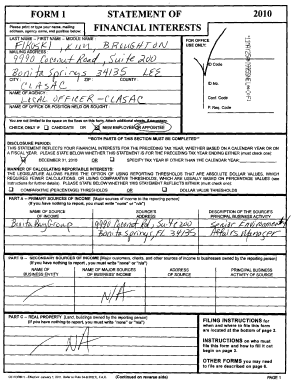 FORM 1
STATEMENT OF
2010
Please print or type your name, mailing
address, agency name, and position below:
FINANCIAL INTERESTS
LAST NAME -- FIRST NAME -- MIDDLE NAME :
FOR OFFICE
USE ONLY:
KIM, BROUGHTON
MAILING ADDRESS :
9990 Coconut Road, Suite 200
Bonita Springs 34135 LEE
CITY : ZIP : COUNTY :
ID Code
CLASAC
NAME OF AGENCY :
ID No.
LOCAL OFFICER - CLASAC
Conf. Code
NAME OF OFFICE OR POSITION HELD OR SOUGHT :
P. Req. Code
You are not limited to the space on the lines on this form. Attach additional sheets, if necessary.
CHECK ONLY IF CANDIDATE OR NEW EMPLOYEE OR APPOINTEE
**BOTH PARTS OF THIS SECTION MUST BE COMPLETED**
DISCLOSURE PERIOD:
THIS STATEMENT REFLECTS YOUR FINANCIAL INTERESTS FOR THE PRECEDING TAX YEAR, WHETHER BASED ON A CALENDAR YEAR OR ON
A FISCAL YEAR. PLEASE STATE BELOW WHETHER THIS STATEMENT IS FOR THE PRECEDING TAX YEAR ENDING EITHER (must check one):
DECEMBER 31, 2010 OR SPECIFY TAX YEAR IF OTHER THAN THE CALENDAR YEAR:
MANNER OF CALCULATING REPORTABLE INTERESTS:
THE LEGISLATURE ALLOWS FILERS THE OPTION OF USING REPORTING THRESHOLDS THAT ARE ABSOLUTE DOLLAR VALUES, WHICH
REQUIRES FEWER CALCULATIONS, OR USING COMPARATIVE THRESHOLDS, WHICH ARE USUALLY BASED ON PERCENTAGE VALUES (see
instructions for further details). PLEASE STATE BELOW WHETHER THIS STATEMENT REFLECTS EITHER (must check one):
COMPARATIVE (PERCENTAGE) THRESHOLDS OR DOLLAR VALUE THRESHOLDS
PART A -- PRIMARY SOURCES OF INCOME [Major sources of income to the reporting person]
(If you have nothing to report, you must write "none" or "n/a")
NAME OF SOURCE OF INCOME SOURCE'S ADDRESS DESCRIPTION OF THE SOURCE'S PRINCIPAL BUSINESS ACTIVITY
Bonita Bay Group 9990 Coconut Rd, Suite 200 Senior Environmental
Bonita Springs, FL 34135 Affairs Manager
PART B -- SECONDARY SOURCES OF INCOME [Major customers, clients, and other sources of income to businesses owned by the reporting person]
(If you have nothing to report, you must write "none" or "n/a")
NAME OF BUSINESS ENTITY NAME OF MAJOR SOURCES OF BUSINESS' INCOME ADDRESS OF SOURCE PRINCIPAL BUSINESS ACTIVITY OF SOURCE
N/A
PART C -- REAL PROPERTY [Land, buildings owned by the reporting person]
(If you have nothing to report, you must write "none" or "n/a")
N/A
FILING INSTRUCTIONS for
when and where to file this form
are located at the bottom of page 2.
INSTRUCTIONS on who must
file this form and how to fill it out
begin on page 3.
OTHER FORMS you may
need to file are described on page 6.
(Continued on reverse side)
PAGE 1